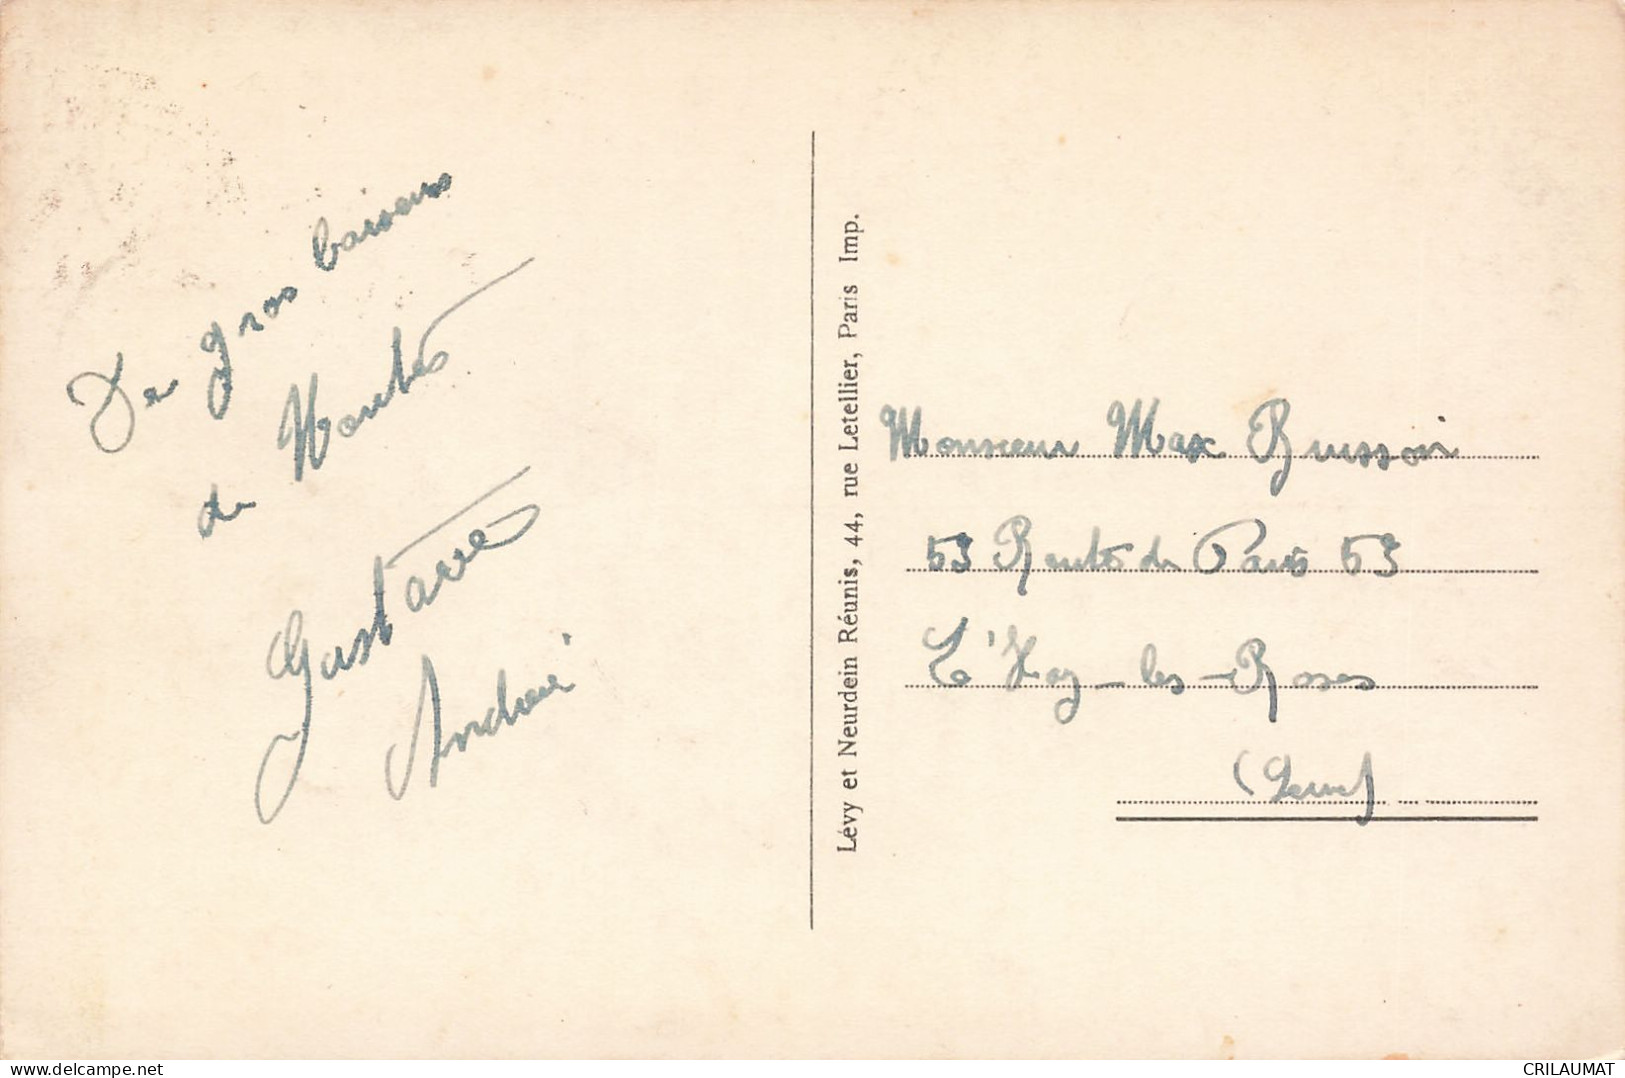 De gros baisers
de Nantes
Gustave
André
Lévy et Neurdein Réunis, 44, rue Letellier, Paris Imp.
Monsieur Max Buisson
53 Route de Paris 53
L'Hay-les-Roses
(Seine)
delcampe.net
CRILAUMAT